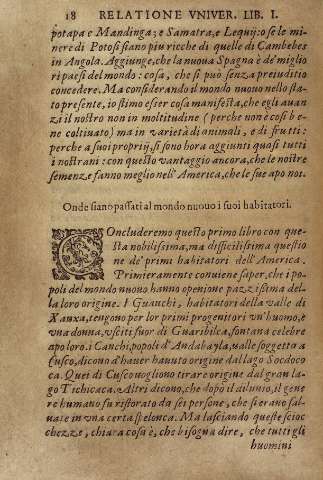 18 RELATIONE VNIVER. LIB. I.
potapa e Mandinga; e Samatra, e Lequij: o se le mi
nere di Potosi siano piu ricche di quelle di Cambebes
in Angola. Aggiunge, che la nuova Spagna è de' miglio
ri paesi del mondo: cosa, che si può senza preiuditio
concedere. Ma considerando il mondo nuouo nello sta
to presente, io stimo esser cosa manifesta, che egli auan
zi il nostro non in moltitudine (perche non è così be
ne coltiuato) ma in varietà di animali, e di frutti:
perche a' suoi proprij, si sono hora aggiunti quasi tutti
i nostrani: con questo vantaggio ancora, che le nostre
semenze fanno meglio nell' America, che le sue apo noi.
Onde siano passati al mondo nuouo i suoi habitatori.
Concluderemo questo primo libro con que
sta nobilissima, ma difficilissima questio
ne de' primi habitatori dell' America.
Primieramente conuiene saper, che i po
poli del mondo nuouo hanno openione pazzissima del
la loro origine. I Guanchi, habitatori della valle di
Xauxa, tengono per lor primi progenitori vn' huomo, e
vna donna, vsciti fuor di Guaribilca, fontana celebre
apo loro. i Canchi, popoli d'Andabayla, ualle soggetto a
Cusco, dicono d'hauer hauuto origine dal lago Socdoco
ca. Quei di Cusco uogliono tirare origine dal gran la
go Tichicaca. Altri dicono, che dopò il diluuio, il gene
re humano fu ristorato da sei persone, che si erano sal
uate in vna certa spelonca. Ma lasciando queste scioc
chezze, chiara cosa è, che bisogna dire, che tutti gli
huomini